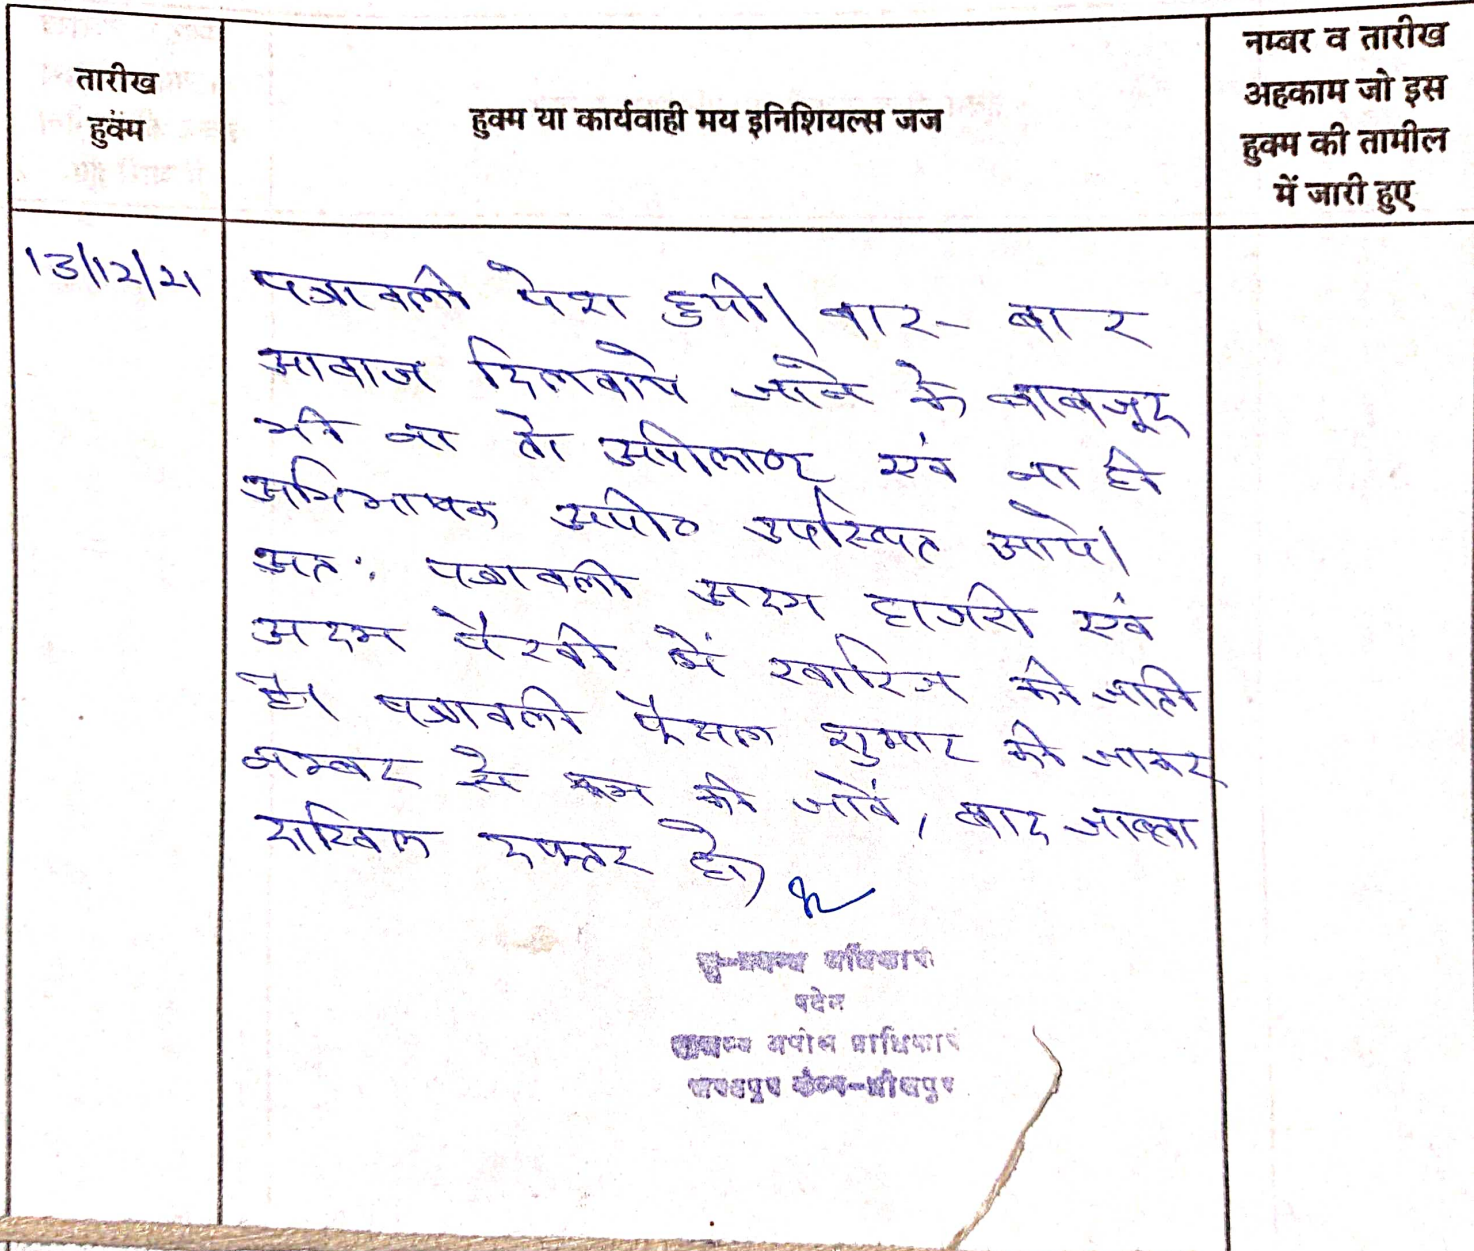 तारीख
हुक्म
हुक्म या कार्यवाही मय इनिशियल्स जज
नम्बर व तारीख
अहकाम जो इस
हुक्म की तामील
में जारी हुए
13/12/21
पत्रावली पेश हुयी। बार- बार
आवाज दिलवाये जाने के बावजूद
भी ना तो अपीलान्ट एवं ना ही
अभिभाषक अपी० उपस्थित आये।
अत: पत्रावली अदम हाजरी एवं
अदम पैरवी में खारिज की जाती
है। पत्रावली फैसल शुमार की जाकर
नम्बर से कम की जावें, बाद जाब्ता
दाखिल दफ्तर हो।
भू-प्रबन्ध अधिकारी
पदेन
राजस्व अपील प्राधिकारी